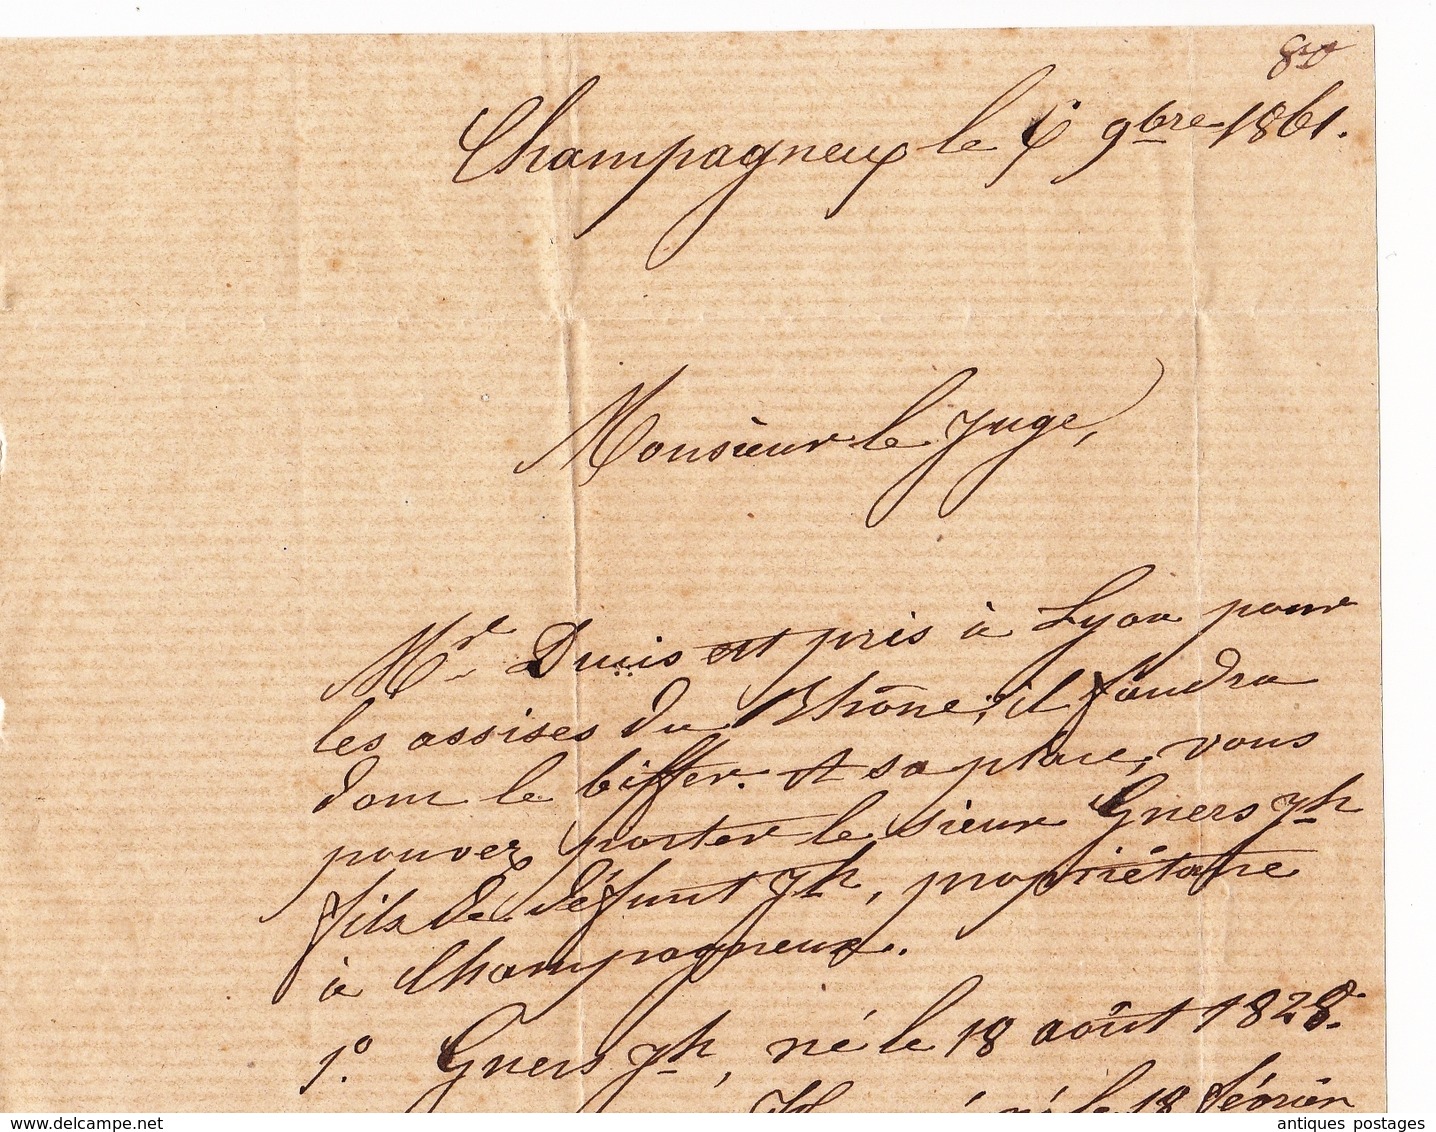 Champagneux le 9bre 1861.
Monsieur le Juge,
Mr est pris à Lyon pour
les assises du Rhône, il faudra
donc le biffer. et sa place, vous
pouvez porter le sieur Guers Jh
fils de défunt Jh, propriétaire
à Champagneux.
1º. Guers Jh, né le 18 août 1828.
né le 18 février
antiques postages
delcampe.net